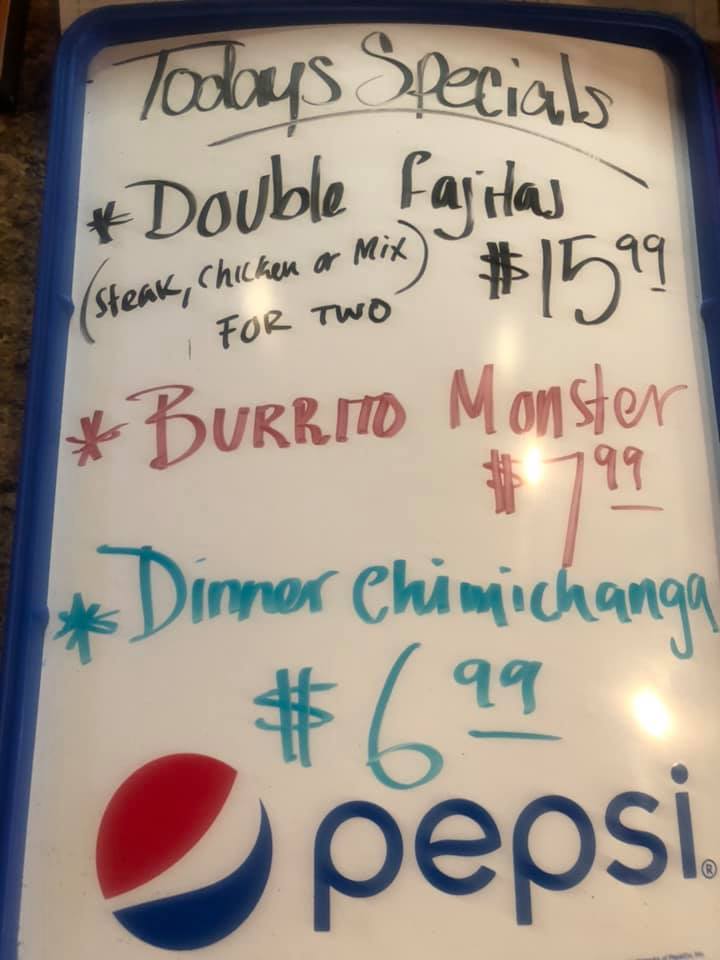 Todays Specials
* Double Fajitas
(Steak, Chicken or Mix) $15.99
FOR TWO
* BURRITO Monster
$7.99
* Dinner Chimichanga
$6.99
pepsi®